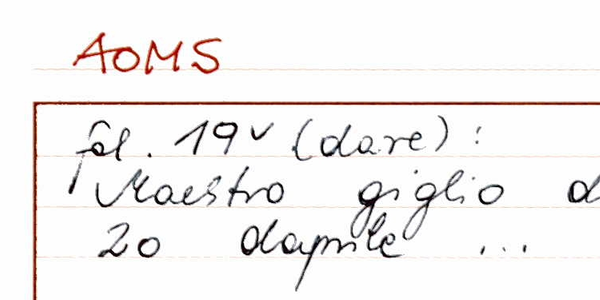 AOMS
fol. 19v (dare):
Maestro giglio d
20 daprile ...